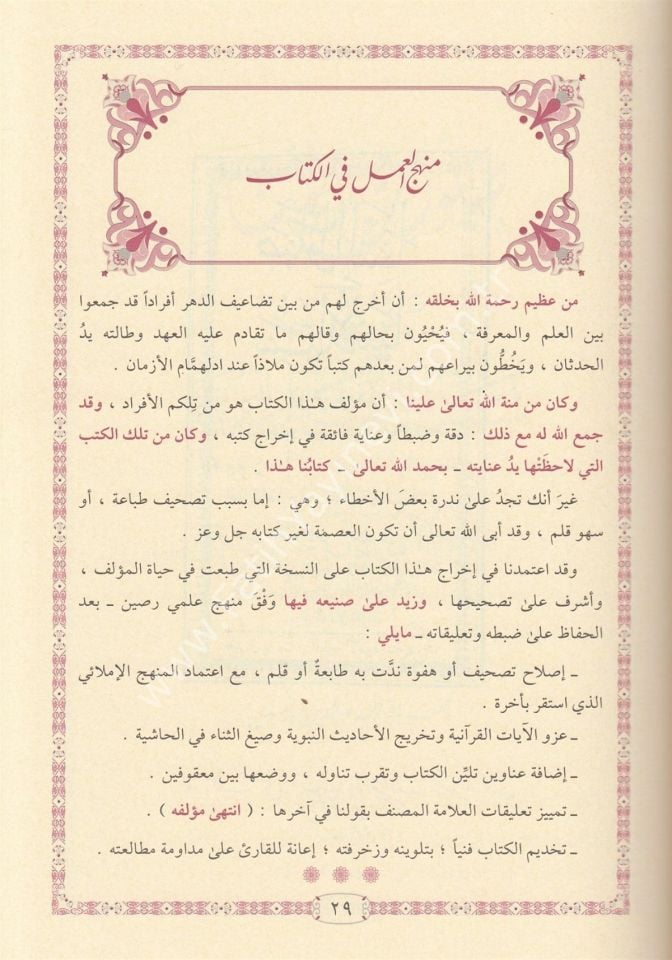 منهج العمل في الكتاب
من عظيم رحمة الله بخلقه : أن أخرج لهم من بين تضاعيف الدهر أفراداً قد جمعوا
بين العلم والمعرفة ، فيُحْيُون بحالهم وقالهم ما تقادم عليه العهد وطالته يدُ
الحدثان ، ويَخُطُّون بيراعهم لمن بعدهم كتباً تكون ملاذاً عند ادلهمَّامِ الأزمان .
وكان من منة الله تعالىٰ علينا : أن مؤلف هـٰذا الكتاب هو من تِلكم الأفراد ، وقد
جمع الله له مع ذلك : دقة وضبطاً وعناية فائقة في إخراج كتبه ، وكان من تلك الكتب
التي لاحظَتْها يدُ عنايته ـ بحمد الله تعالىٰ ـ كتابُنا هـٰذا .
غيرَ أنك تجدُ علىٰ ندرة بعضَ الأخطاء ؛ وهي : إما بسبب تصحيف طباعة ، أو
سهو قلم ، وقد أبى الله تعالى أن تكون العصمة لغير كتابه جل وعز .
وقد اعتمدنا في إخراج هـٰذا الكتاب على النسخة التي طبعت في حياة المؤلف ،
وأشرف علىٰ تصحيحها ، وزيد علىٰ صنيعه فيها وَفْقَ منهج علمي رصين ـ بعد
الحفاظ علىٰ ضبطه وتعليقاته ـ مايلي :
ـ إصلاح تصحيف أو هفوة ندَّت به طابعةٌ أو قلم ، مع اعتماد المنهج الإملائي
الذي استقر بأخرة .
ـ عزو الآيات القرآنية وتخريج الأحاديث النبوية وصيغ الثناء في الحاشية .
ـ إضافة عناوين تليِّن الكتاب وتقرب تناوله ، ووضعها بين معقوفين .
ـ تمييز تعليقات العلامة المصنف بقولنا في آخرها : ( انتهىٰ مؤلفه ) .
ـ تخديم الكتاب فنياً ؛ بتلوينه وزخرفته ؛ إعانة للقارئ علىٰ مداومة مطالعته .
٢٩